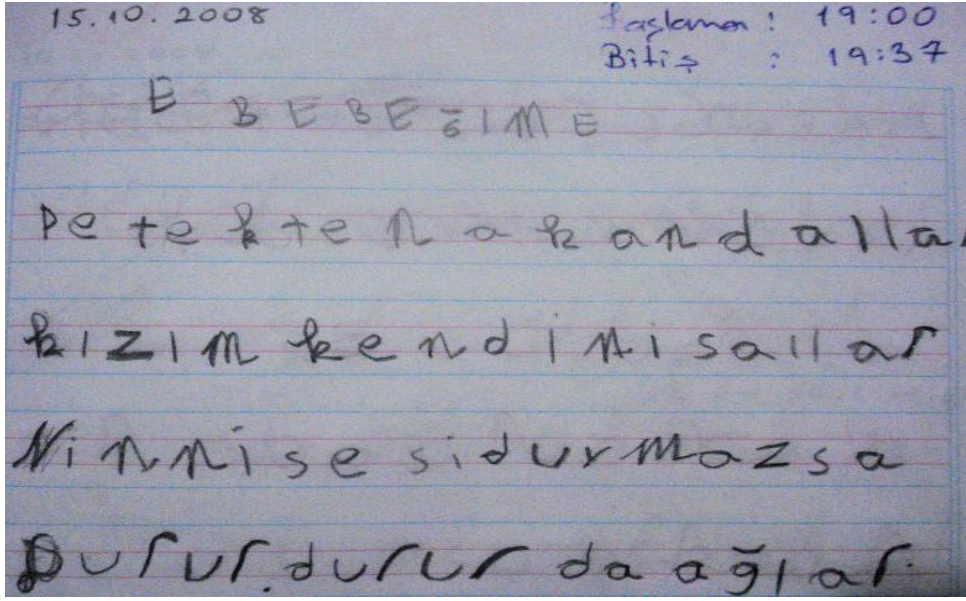 15.10.2008 Başlama : 19:00
Bitiş : 19:37
E BEBEĞIME
Petekten akan dallar
kızım kendini sallar
Ninni sesi durmazsa
Durur.durur da ağlar.